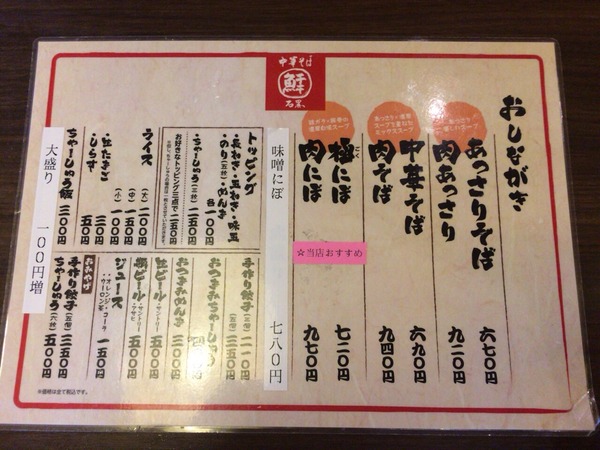 中華そば
鮮
石黒
おしながき
あっさりそば 六七〇円
肉あっさり 九二〇円
中華そば 六九〇円
肉そば 九四〇円
極にぼ 七二〇円
ごく
肉にぼ 九七〇円
☆当店おすすめ
味噌にぼ 七八〇円
トッピング
・長ねぎ・玉ねぎ・味玉
・のり(五枚)・めんま 各一〇〇円
・ちゃーしゅう(三枚) 一五〇円
お好きなトッピング三点で二五〇円
ライス (大) 二〇〇円
(中) 一五〇円
(小) 一〇〇円
・生たまご 五〇円
・しらす 一三〇円
ちゃーしゅう飯 三〇〇円
大盛り 一〇〇円増
手作り餃子(三個) 二一〇円
(五個) 三五〇円
おつまみちゃーしゅう
おつまみめんま 三〇〇円
生ビール・サントリー 五〇〇円
瓶ビール・サントリー・アサヒ 五〇〇円
ジュース 一五〇円
・オレンジ・コーラ
・ウーロン茶
おみやげ
手作り餃子(五個) 三五〇円
ちゃーしゅう(六枚) 五〇〇円
※価格は全て税込です。